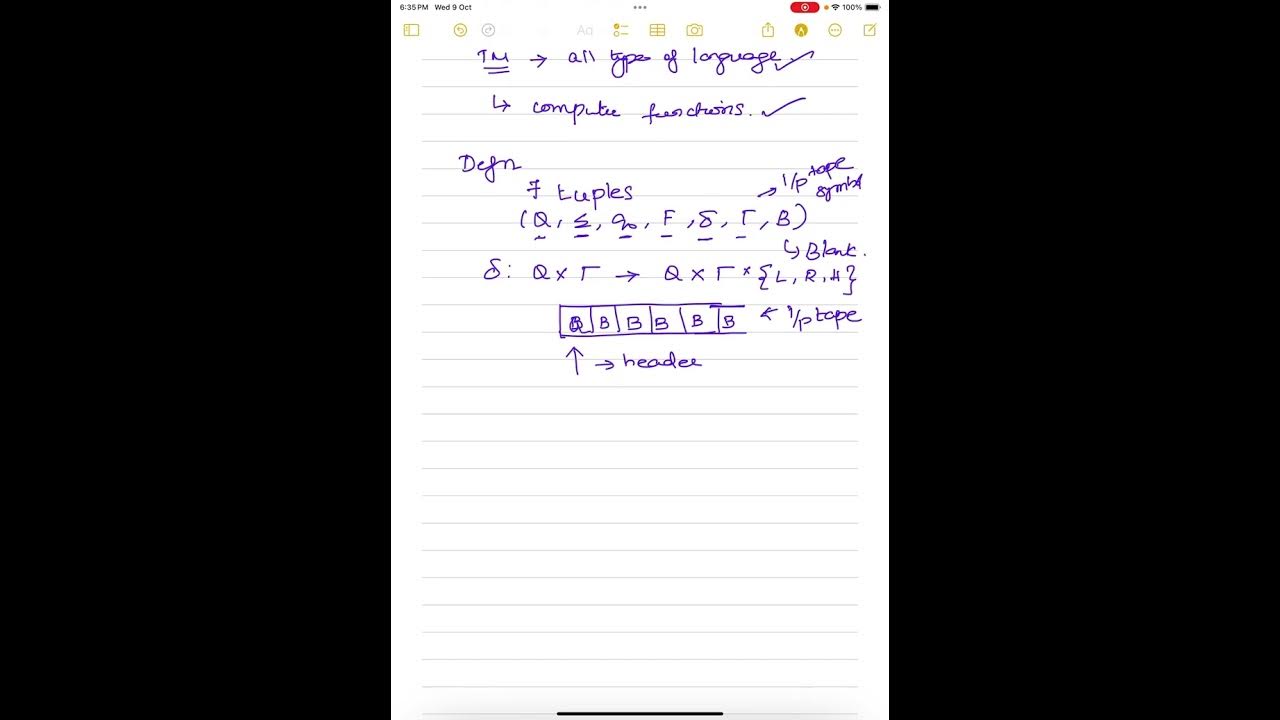 6:35 PM Wed 9 Oct
100%
Aa
TM → all type of language. ✓
↳ compute functions. ✓
Defn
7 tuples
→ I/p tape symbol
(Q, Σ, q₀, F, δ, Γ, B)
↳ Blank.
δ: Q × Γ → Q × Γ × {L, R, H}
B B B B B ← I/p tape
↑ → header